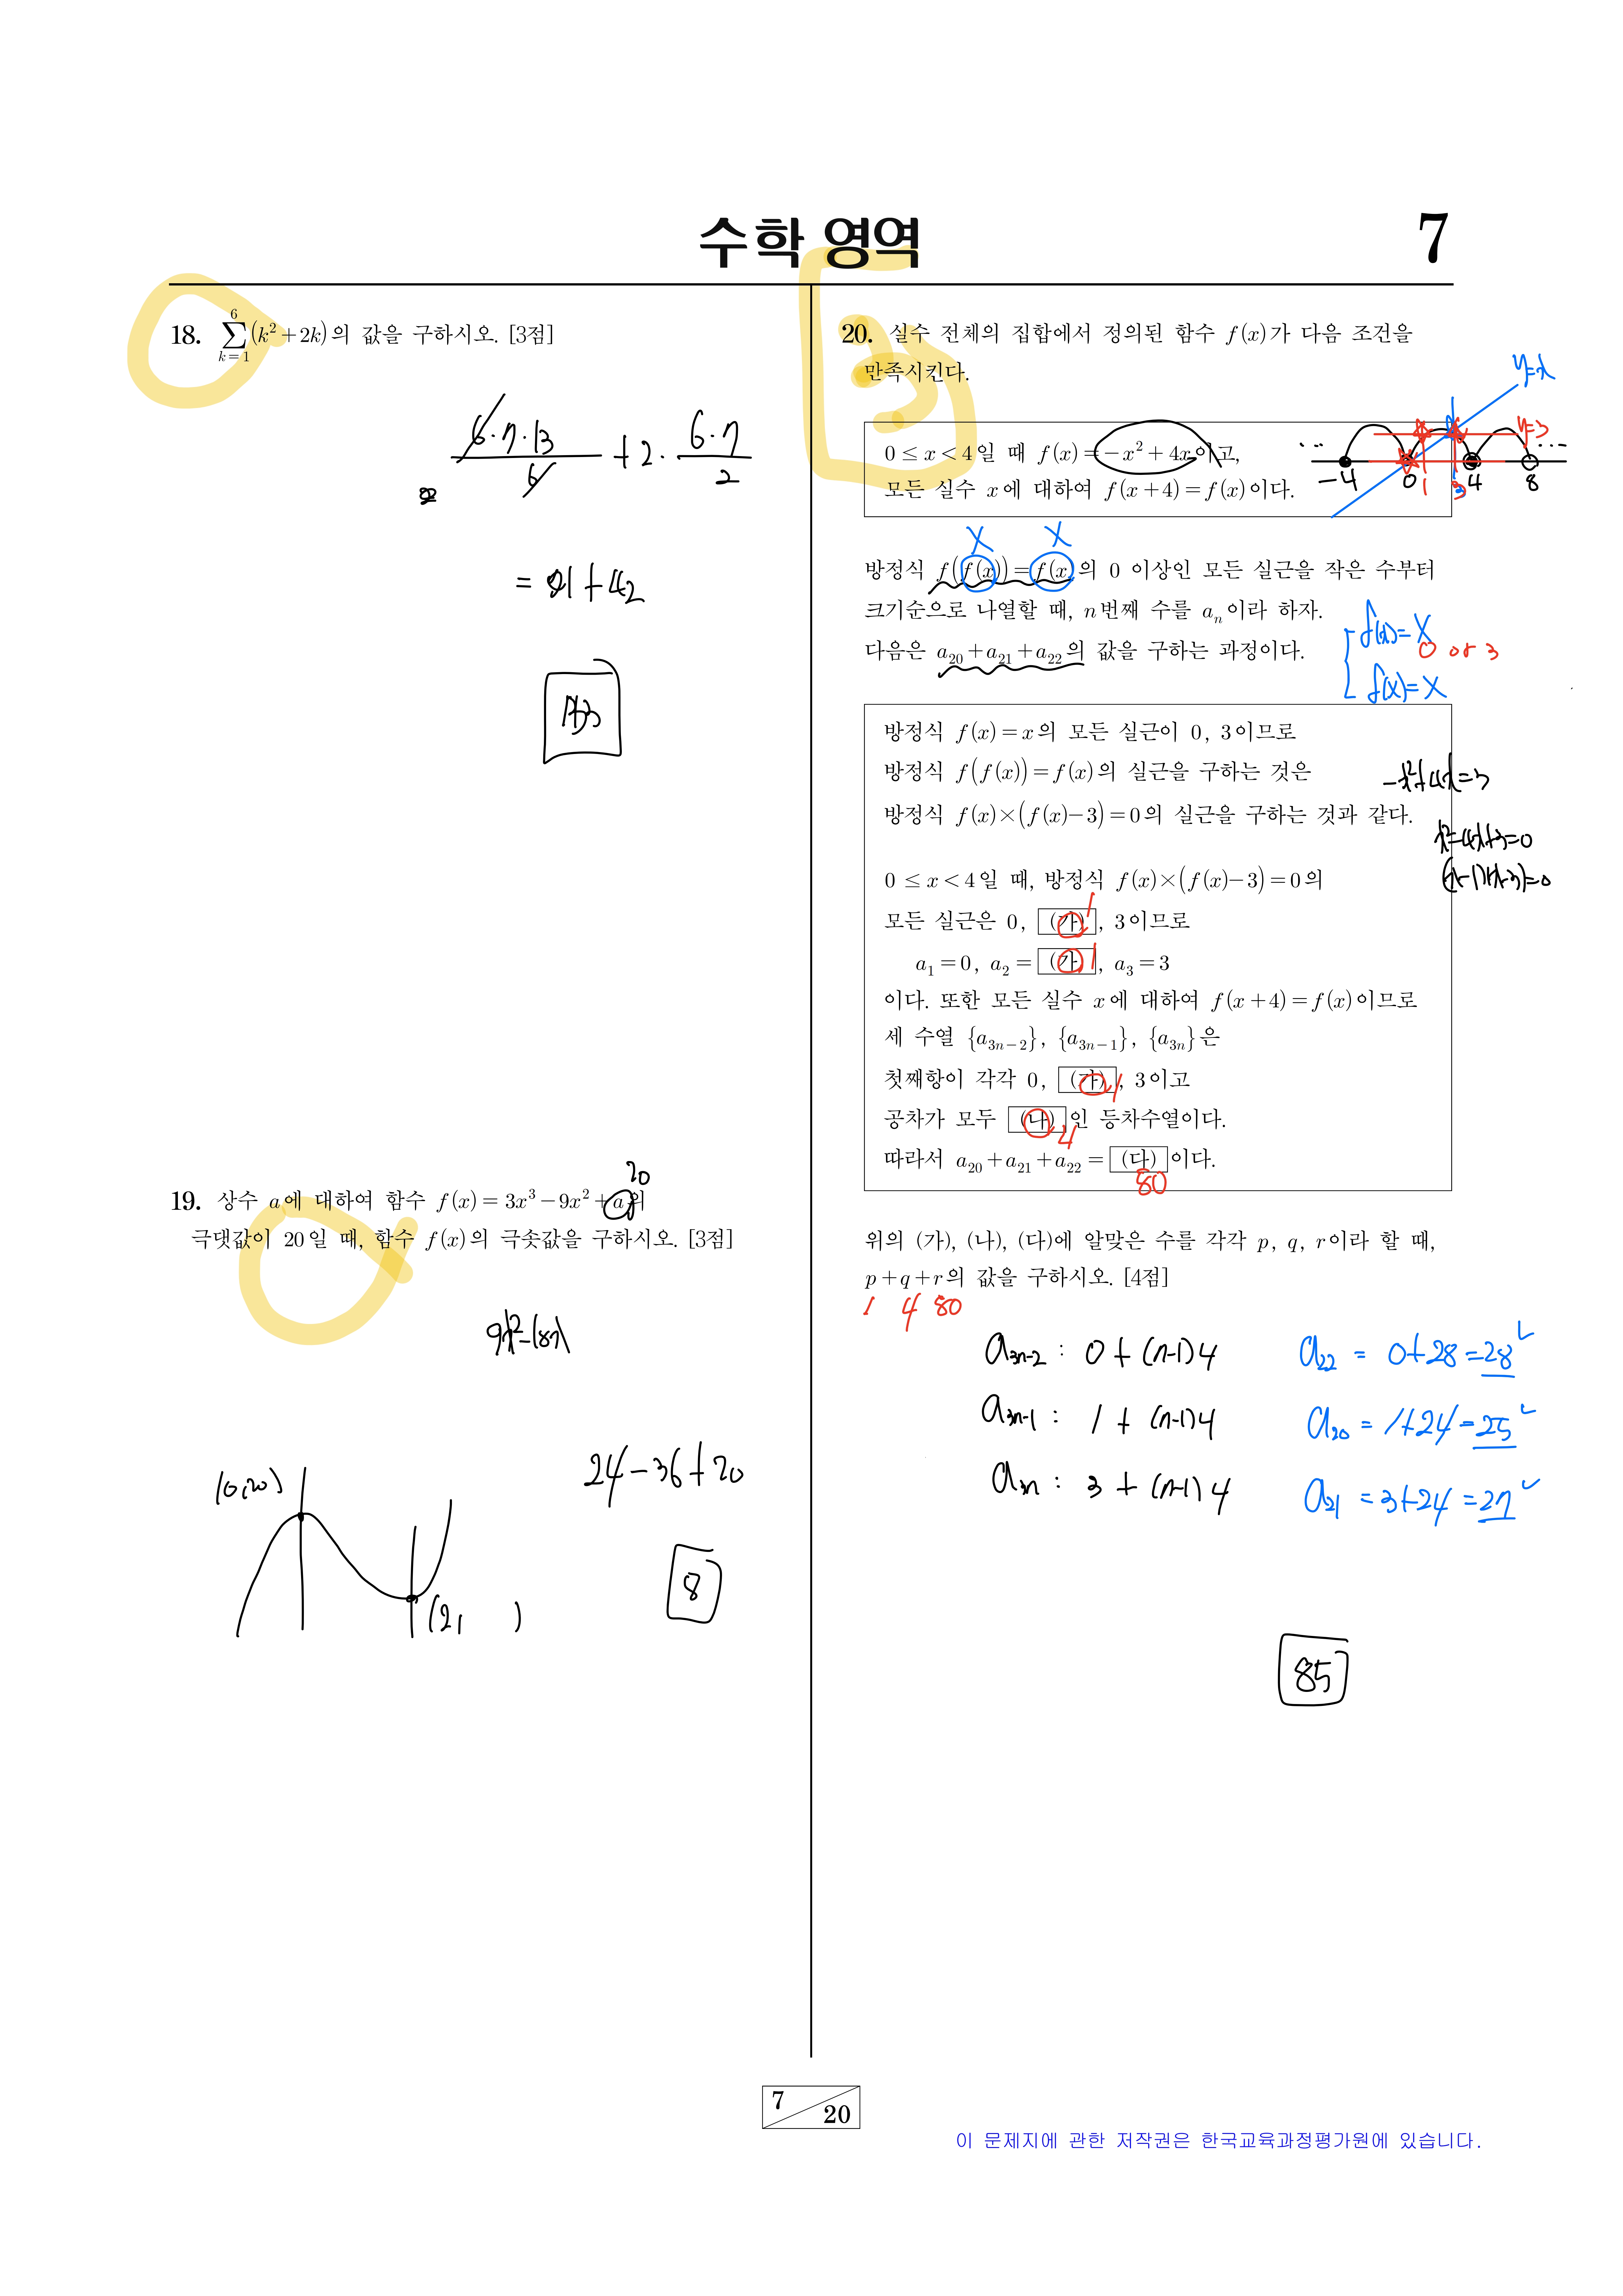 수학 영역
7
18. $\sum_{k=1}^{6}(k^2+2k)$의 값을 구하시오. [3점]
$\frac{6 \cdot 7 \cdot 13}{6} + 2 \cdot \frac{6 \cdot 7}{2}$
= 91 + 42
133
19. 상수 a에 대하여 함수 f(x) = 3x³ − 9x² + a의
20
극댓값이 20일 때, 함수 f(x)의 극솟값을 구하시오. [3점]
9x² − 18x
24 − 36 + 20
(0,20)
8
(2, )
20. 실수 전체의 집합에서 정의된 함수 f(x)가 다음 조건을
만족시킨다.
y=x
y=3
0 ≤ x < 4일 때 f(x) = −x² + 4x이고,
모든 실수 x에 대하여 f(x+4) = f(x)이다.
… −4 0 1 3 4 8 …
X X
방정식 f(f(x)) = f(x)의 0 이상인 모든 실근을 작은 수부터
크기순으로 나열할 때, n번째 수를 aₙ이라 하자.
다음은 a₂₀ + a₂₁ + a₂₂의 값을 구하는 과정이다.
f(x)=X
0 or 3
f(X)=X
방정식 f(x) = x의 모든 실근이 0, 3이므로
방정식 f(f(x)) = f(x)의 실근을 구하는 것은
−x²+4x=3
방정식 f(x)×(f(x)−3) = 0의 실근을 구하는 것과 같다.
x²−4x+3=0
(x−1)(x−3)=0
0 ≤ x < 4일 때, 방정식 f(x)×(f(x)−3) = 0의
모든 실근은 0, (가), 3이므로
1
a₁ = 0, a₂ = (가), a₃ = 3
1
이다. 또한 모든 실수 x에 대하여 f(x+4) = f(x)이므로
세 수열 {a₃ₙ₋₂}, {a₃ₙ₋₁}, {a₃ₙ}은
첫째항이 각각 0, (가), 3이고
1
공차가 모두 (나)인 등차수열이다.
4
따라서 a₂₀ + a₂₁ + a₂₂ = (다)이다.
80
위의 (가), (나), (다)에 알맞은 수를 각각 p, q, r이라 할 때,
p+q+r의 값을 구하시오. [4점]
1 4 80
a₃ₙ₋₂ : 0 + (n−1)4
a₂₂ = 0+28 = 28
a₃ₙ₋₁ : 1 + (n−1)4
a₂₀ = 1+24 = 25
a₃ₙ : 3 + (n−1)4
a₂₁ = 3+24 = 27
85
7
20
이 문제지에 관한 저작권은 한국교육과정평가원에 있습니다.